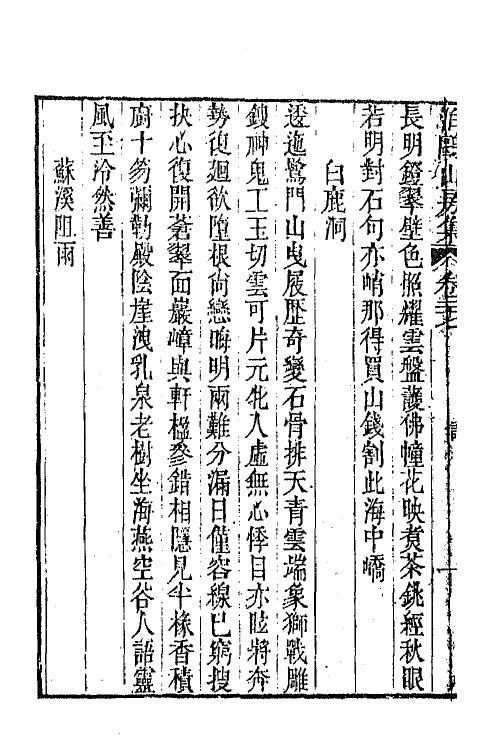 長明鐙翠壁色照耀雲盤護佛幢花映煑茶銚經秋眼
若明對石句亦峭那得買山錢割此海中嶠
白鹿洞
逶迤鷲門山曳履歷奇變石骨排天青雲端象獅戰雕
鎪神鬼工玉切雲可片元牝人虛無心悸目亦眩將奔
勢復廻欲墮根尙戀晦明兩難分漏日僅容線已窮搜
抉心復開蒼翠面巖嶂與軒楹參錯相隱見半椽香積
廚十笏彌勒殿陰崖洩乳泉老樹坐海燕空谷人語靈
風至泠然善
蘇溪阻雨